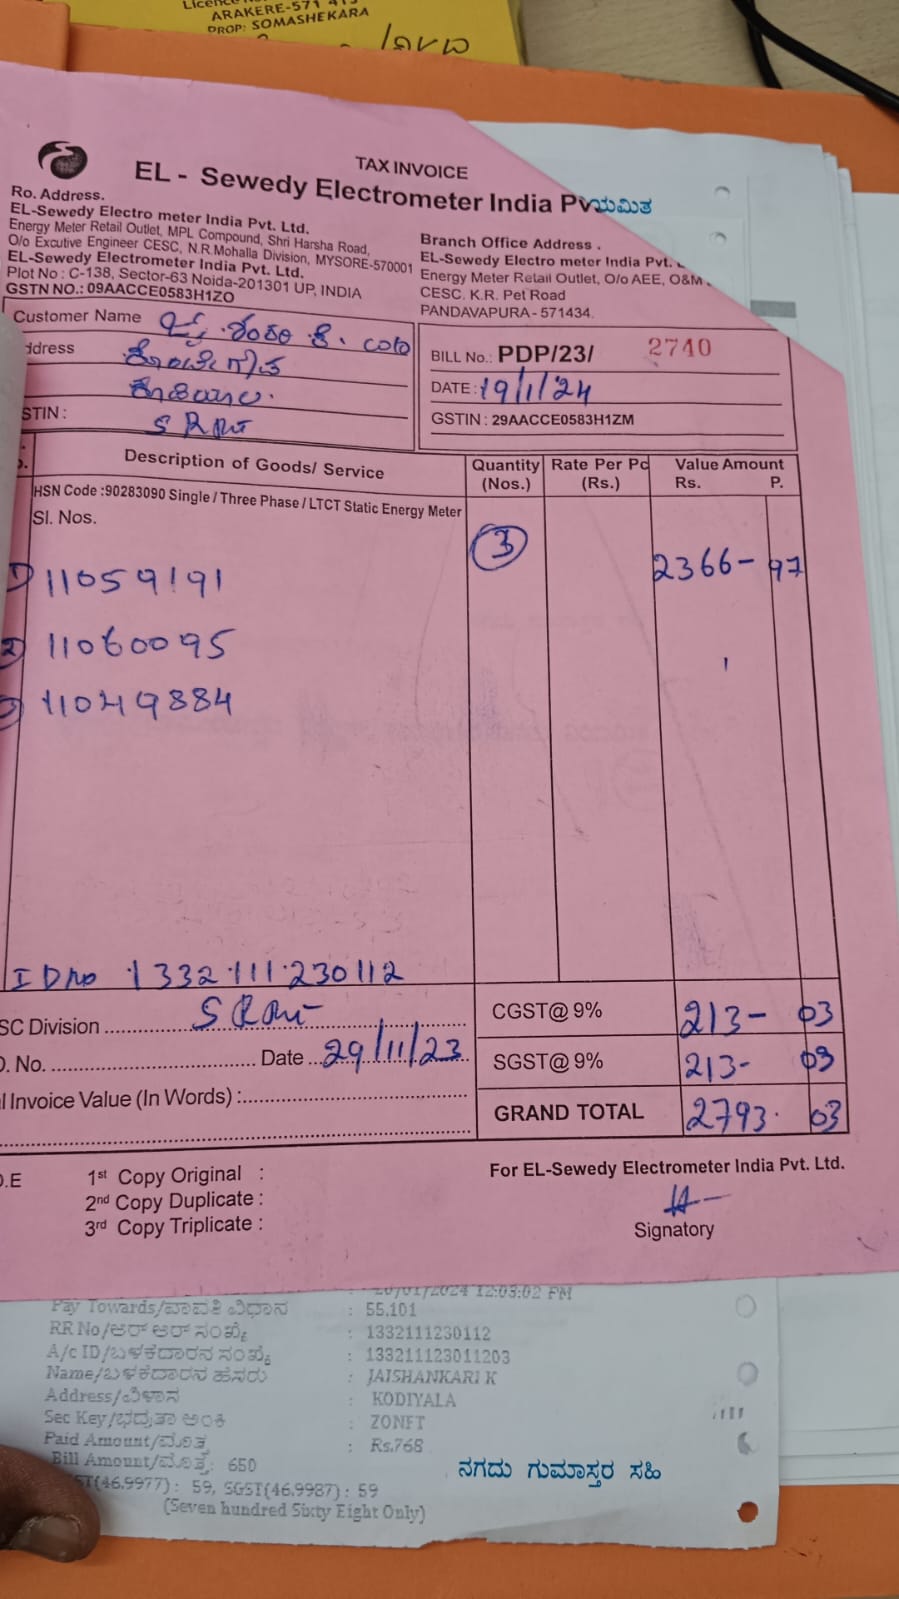 ARAKERE-571
PROP: SOMASHEKARA
TAX INVOICE
EL - Sewedy Electrometer India Pv
ಯಮಿತ
Ro. Address.
EL-Sewedy Electro meter India Pvt. Ltd.
Energy Meter Retail Outlet, MPL Compound, Shri Harsha Road,
O/o Excutive Engineer CESC, N.R.Mohalla Division, MYSORE-570001
EL-Sewedy Electrometer India Pvt. Ltd.
Plot No : C-138, Sector-63 Noida-201301 UP, INDIA
GSTN NO.: 09AACCE0583H1ZO
Branch Office Address .
EL-Sewedy Electro meter India Pvt.
Energy Meter Retail Outlet, O/o AEE, O&M
CESC. K.R. Pet Road
PANDAVAPURA - 571434.
Customer Name
ddress
STIN :
BILL No.: PDP/23/ 2740
DATE : 19/1/24
GSTIN : 29AACCE0583H1ZM
Description of Goods/ Service Quantity (Nos.) Rate Per Pc (Rs.) Value Amount Rs. P.
HSN Code :90283090 Single / Three Phase / LTCT Static Energy Meter
Sl. Nos.
1) 11059191 3 2366- 97
2) 11060095
3) 11049884
ID no 1332 111 230112
SC Division
CGST@ 9% 213- 03
O. No. Date 29/11/23
SGST@ 9% 213- 03
l Invoice Value (In Words) :
GRAND TOTAL 2793. 03
O.E
1st Copy Original :
2nd Copy Duplicate :
3rd Copy Triplicate :
For EL-Sewedy Electrometer India Pvt. Ltd.
Signatory
: 20/01/2024 12:03:02 PM
Pay Towards/ಪಾವತಿ ವಿಧಾನ : 55,101
RR No/ಆರ್ ಆರ್ ಸಂಖ್ಯೆ : 1332111230112
A/c ID/ಬಳಕೆದಾರನ ಸಂಖ್ಯೆ : 133211123011203
Name/ಬಳಕೆದಾರನ ಹೆಸರು : JAISHANKARI K
Address/ವಿಳಾಸ : KODIYALA
Sec Key/ಭದ್ರತಾ ಅಂಕಿ : ZONFT
Paid Amount/ಮೊತ್ತ : Rs.768
Bill Amount/ಮೊತ್ತ: 650
ನಗದು ಗುಮಾಸ್ತರ ಸಹಿ
ST(46.9977) : 59, SGST(46.9987) : 59
(Seven hundred Sixty Eight Only)